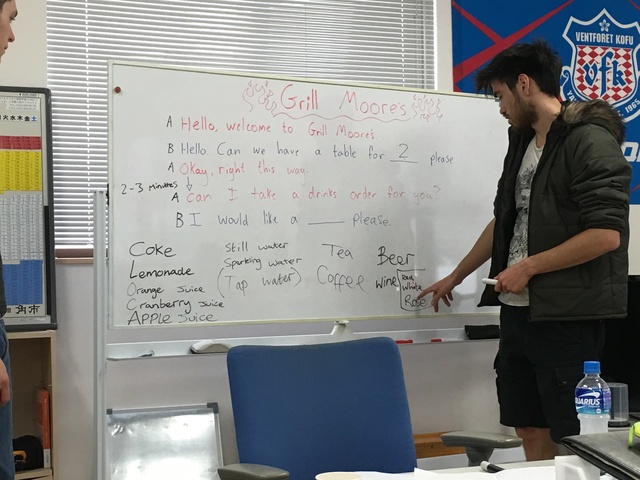 Grill Moore's
A Hello, welcome to Grill Moore's
B Hello. Can we have a table for 2 please
A Okay, right this way.
2-3 minutes
A Can I take a drinks order for you?
B I would like a ____ please.
Coke
Lemonade
Orange Juice
Cranberry Juice
APPLE Juice
Still water
Sparkling water
(Tap water)
Tea
Coffee
Beer
Wine
Red
White
Rose
VENTFORET KOFU
vfk
1965
火水木金土